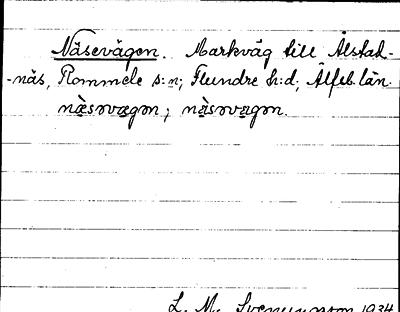 Näsevägen. Markväg till Ålstad-
-näs, Rommele s:n; Flundre h:d; Älfsb. län.
næ̀sǝvægǝn; næ̀sǝvægǝn.
L. M. Svenungsson 1934